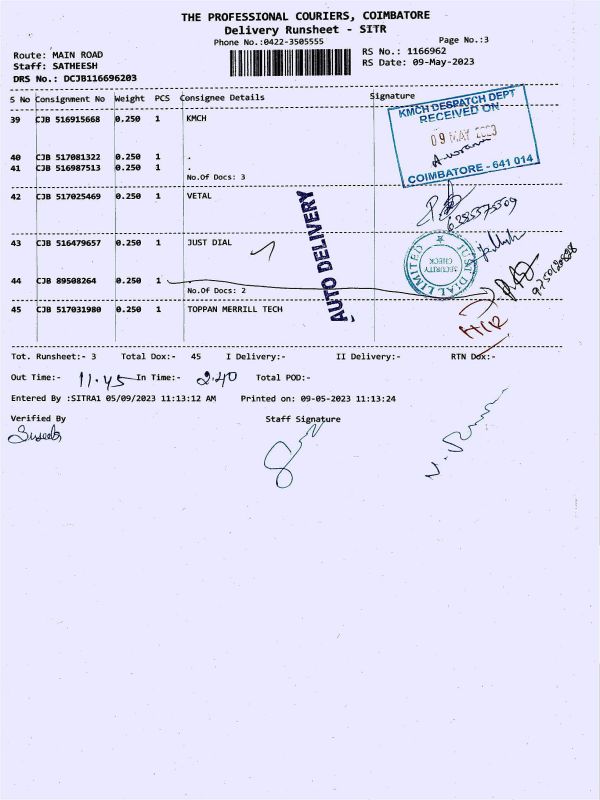 THE PROFESSIONAL COURIERS, COIMBATORE
Delivery Runsheet - SITR
Phone No.:0422-3505555
Page No.:3
Route: MAIN ROAD
Staff: SATHEESH
DRS No.: DCJB116696203
RS No.: 1166962
RS Date: 09-May-2023
S No Consignment No Weight PCS Consignee Details Signature
39 CJB 516915668 0.250 1 KMCH
KMCH DESPATCH DEPT
RECEIVED ON
09 MAY 2023
COIMBATORE - 641 014
40 CJB 517081322 0.250 1 .
41 CJB 516987513 0.250 1 .
No.Of Docs: 3
42 CJB 517025469 0.250 1 VETAL
AUTO DELIVERY
43 CJB 516479657 0.250 1 JUST DIAL
JUST DIAL LIMITED
SECURITY CHECK
44 CJB 89508264 0.250 1 .
No.Of Docs: 2
45 CJB 517031980 0.250 1 TOPPAN MERRILL TECH
Tot. Runsheet:- 3 Total Dox:- 45 I Delivery:- II Delivery:- RTN Dox:-
Out Time:- 11.45 In Time:- 2.40 Total POD:-
Entered By :SITRA1 05/09/2023 11:13:12 AM Printed on: 09-05-2023 11:13:24
Verified By Staff Signature